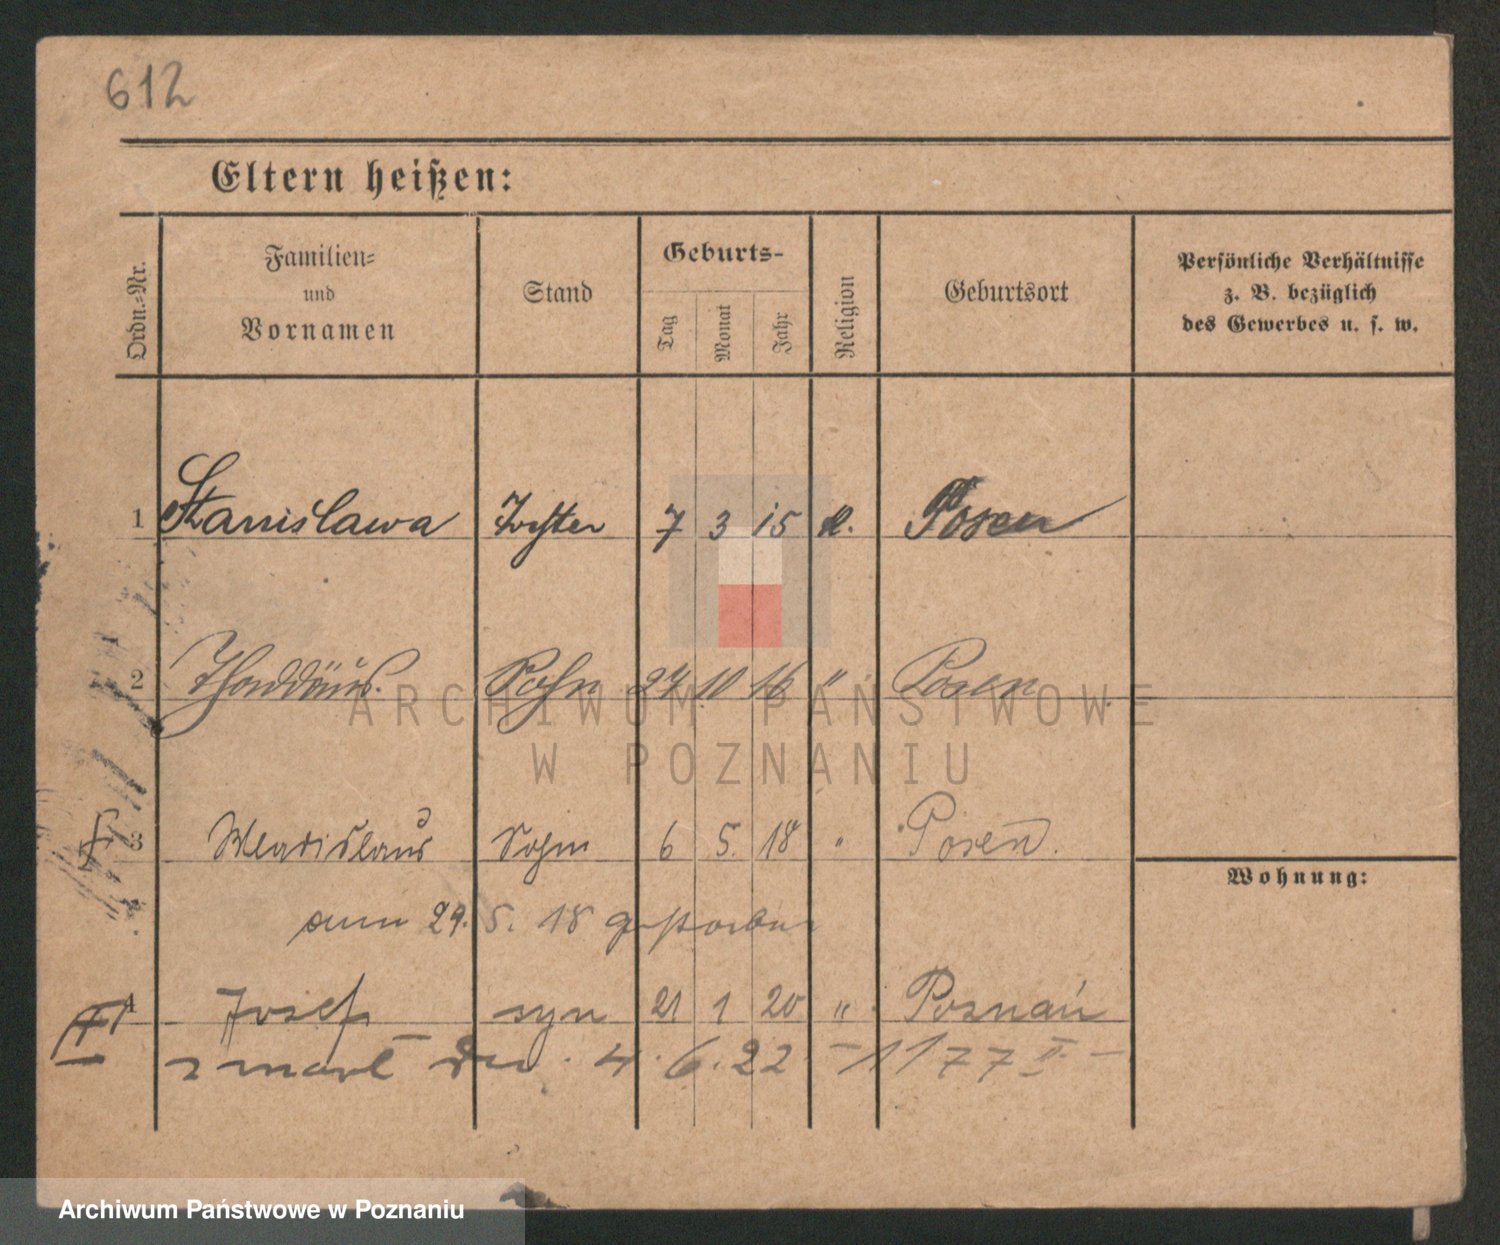 612
Eltern heißen:
Ordn.-Nr.
Familien-
und
Vornamen
Stand
Geburts-
Tag
Monat
Jahr
Religion
Geburtsort
Persönliche Verhältnisse
z. B. bezüglich
des Gewerbes u. s. w.
1 Stanislawa Tochter 7 3 15 k. Posen
2 Thaddäus. Sohn 27 10 16 " Posen
3 Wladislaus Sohn 6 5. 18 " Posen.
Wohnung:
am 29. 5. 18 gestorben
4 Josef syn 21 1 20 " Poznań
zmarł 4. 6. 22 - 1177 II -
ARCHIWUM PAŃSTWOWE
W POZNANIU
Archiwum Państwowe w Poznaniu